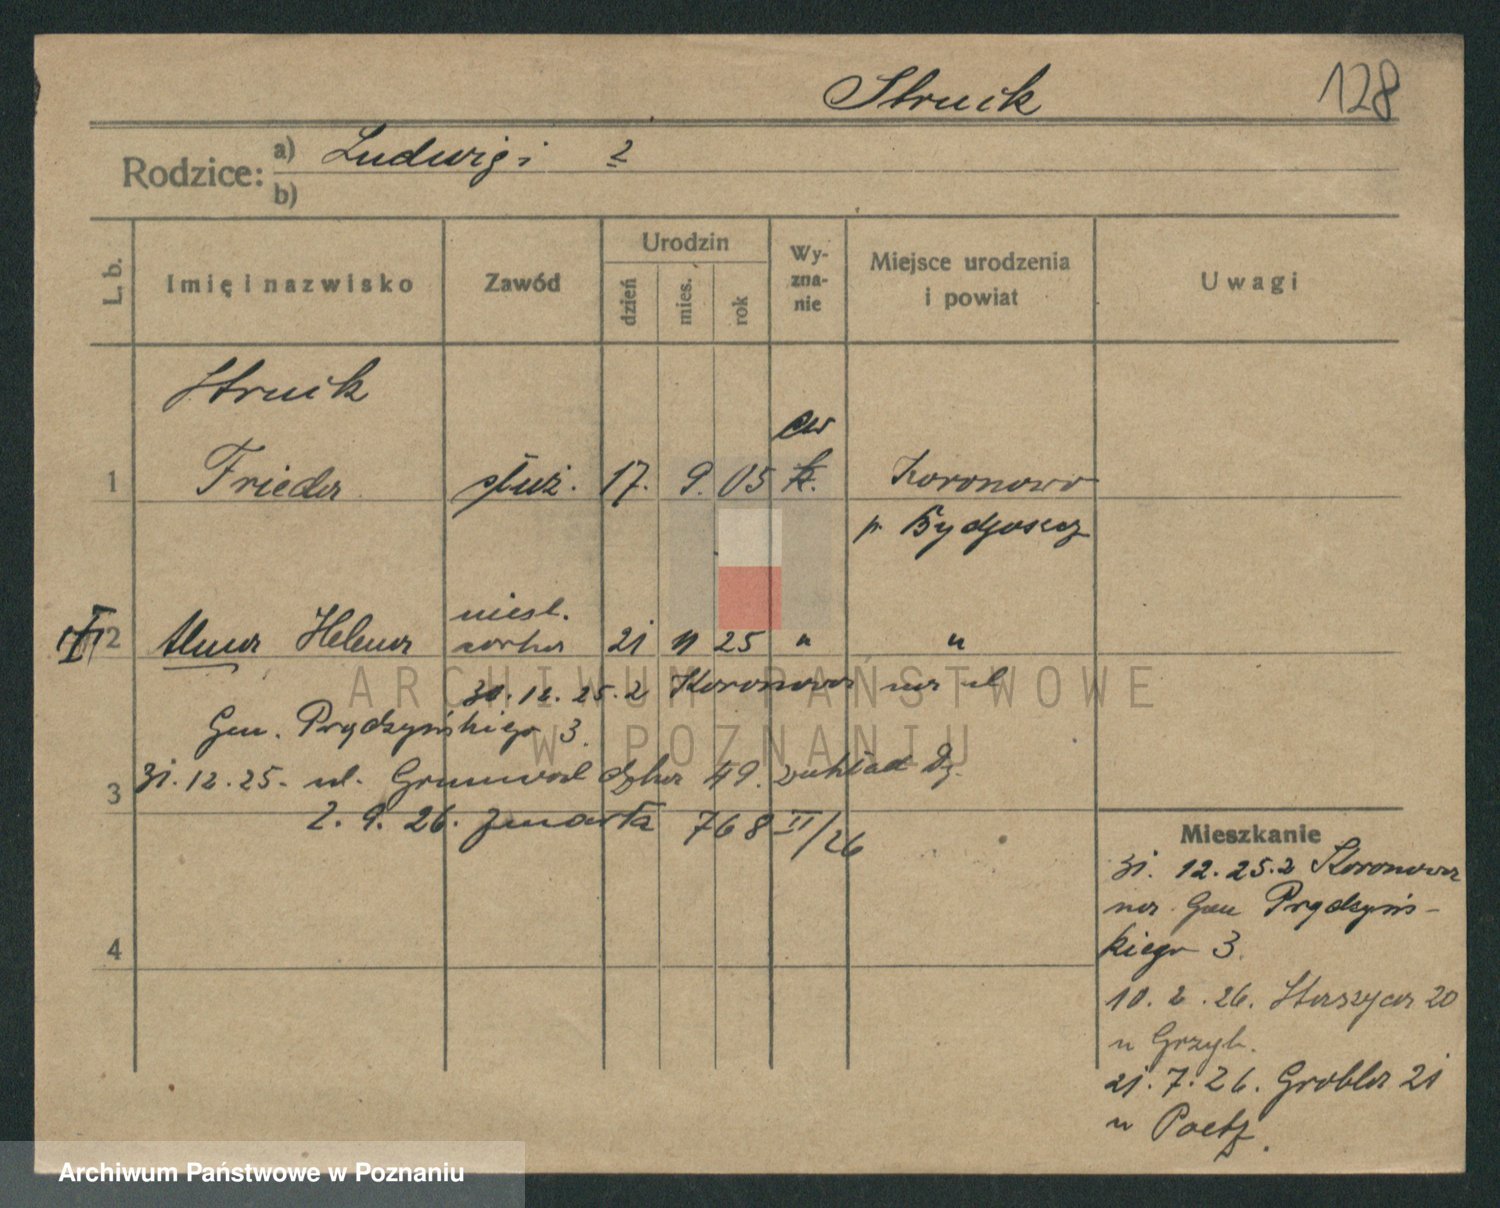 Struck
128
Rodzice: a) Ludwig i ?
b)
L. b.
Imię i nazwisko
Zawód
Urodzin
dzień
mies.
rok
Wy-
zna-
nie
Miejsce urodzenia
i powiat
Uwagi
Struck
ew
1 Frieda służ. 17. 9. 05 k. Koronowo
p. Bydgoszcz
niesl.
2 Alma Helena córka 21 11 25 " "
30.12.25. z Koronowa na ul
Gen. Prądzyńskiego 3.
3 31.12.25. ul. Grunwaldzka 49. zakład
2. 9. 26. zmarła 768 II/26
4
Mieszkanie
31. 12. 25. z Koronowa
na Gen Prądzyńs-
kiego 3.
10. 2. 26. Staszyca 20
u Grzyb.
21. 7. 26. Grobla 21
u
ARCHIWUM PAŃSTWOWE
W POZNANIU
Archiwum Państwowe w Poznaniu